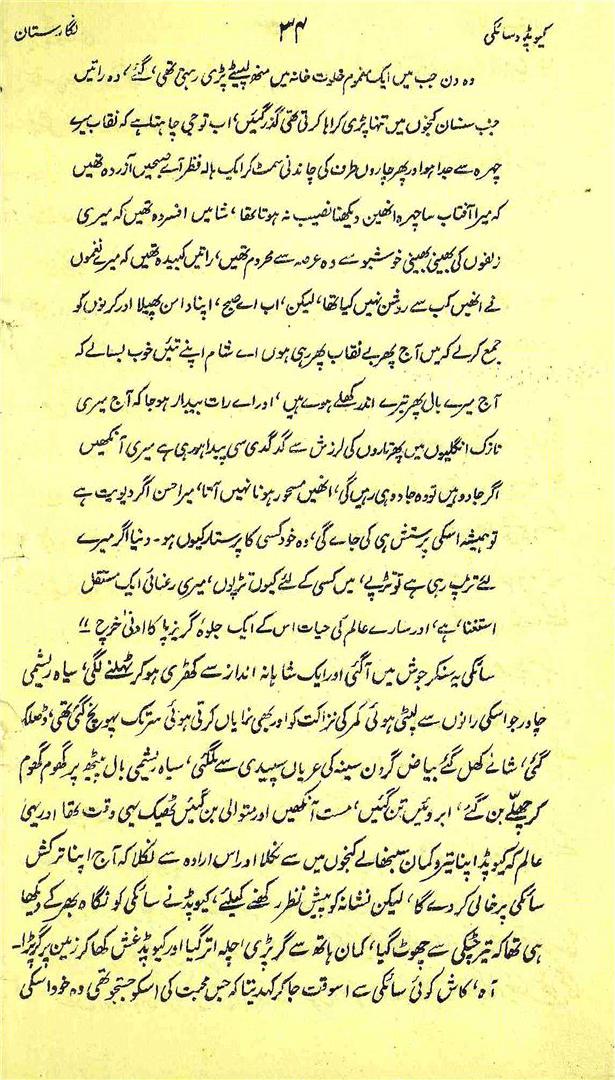 کیوپڈ و سائکی ۳۴ نگارستان
وہ دن جب میں ایک مغموم خلوت خانہ میں منھ لپیٹے پڑی رہتی تھی، گئے، وہ راتیں
جب سنسان کنجوں میں تنہا پڑی کراہا کرتی تھی گذر گئیں، اب تو جی چاہتا ہے کہ نقاب میرے
چہرہ سے جدا ہو اور پھر چاروں طرف کی چاندنی سمٹ کر ایک ہالہ نظر آے صبحیں آزردہ تھیں
کہ میرا آفتاب سا چہرہ انھیں دیکھنا نصیب نہ ہوتا تھا، شامیں افسردہ تھیں کہ میری
زلفوں کی بھینی بھینی خوشبو سے وہ عرصہ سے محروم تھیں، راتیں کبیدہ تھیں کہ میرے نغموں
نے انھیں کب سے روشن نہیں کیا تھا، لیکن، اب اے صبح، اپنا دامن پھیلا اور کرنوں کو
جمع کر لے کہ میں آج پھر بے نقاب پھر رہی ہوں اے شام اپنے تئیں خوب بسالے کہ
آج میرے بال پھر تیرے اندر کھلے ہوے ہیں، اور اے رات بیدار ہو جا کہ آج میری
نازک انگلیوں میں پھر تاروں کی لرزش سے گدگدی سی پیدا ہو رہی ہے میری آنکھیں
اگر جادو ہیں تو وہ جادو ہی رہیں گی، انھیں مسحور ہونا نہیں آتا، میرا حسن اگر دیویت ہے
تو ہمیشہ اسکی پرستش ہی کی جاے گی، وہ خود کسی کا پرستار کیوں ہو۔ دنیا اگر میرے
لئے تڑپ رہی ہے تو تڑپے، میں کسی کے لئے کیوں تڑپوں، میری رعنائی ایک مستقل
استغنا، ہے، اور سارے عالم کی حیات اس کے ایک جلوۂ گریزپا کا ادنیٰ خرچ !!
سائکی یہ سنکر جوش میں آگئی اور ایک شاہانہ انداز سے کھڑی ہو کر ٹہلنے لگی، سیاہ ریشمی
چادر جو اسکی رانوں سے لپٹی ہوئی کمر کی نزاکت کو اور بھی نمایاں کرتی ہوئی سر تک پہونچ گئی تھی، ڈھلک
گئی، شانے کھل گئے بیاض گردن سینہ کی عریاں سپیدی سے ملگئی، سیاہ ریشمی بال پیٹھ پر گھوم گھوم
کر چھلّے بن گئے، ابروئیں تن گئیں، مست آنکھیں اور متوالی بن گئیں ٹھیک یہی وقت تھا اور یہی
عالم کہ کیوپڈ اپنا تیر و کمان سنبھالے کنجوں میں سے نکلا اور اس ارادہ سے نکلا کہ آج اپنا ترکش
سائکی پر خالی کر دے گا، لیکن نشانہ کو پیش نظر رکھنے کیلئے، کیوپڈ نے سائکی کو نگاہ بھر کے دیکھا
ہی تھا کہ تیر چٹکی سے چھوٹ گیا، کمان ہاتھ سے گر پڑی، چلہ اتر گیا اور کیوپڈ غش کھا کر زمین پر گر پڑا۔
آہ، کاش کوئی سائکی سے اسوقت جا کر کہدیتا کہ جس محبت کی اسکو جستجو تھی وہ خود اسکی